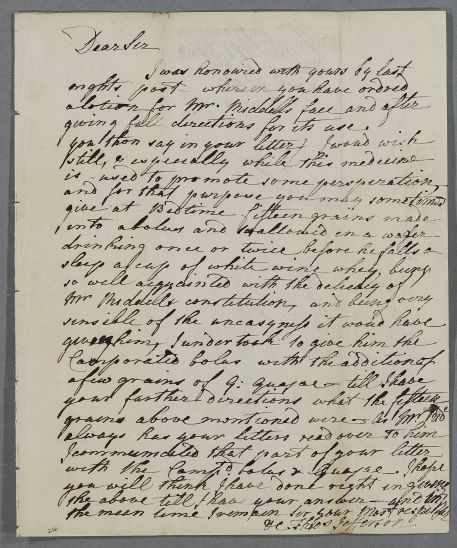 Dear Sir
I was honoured with yours by last
nights post wherein you have ordred
a lotion for Mr. Middells face and after
giving full directions for its use.
you then say in your letter, I woud wish
still, & especially while this medicine
is used to promote some persperation,
and for that purpose you may sometimes
give at Bedtime fifteen grains made
into a bolus and swallowed in a wafer
drinking once or twice before he falls a
sleep a cup of white wine whey, being
so well acquainted with the delicacy of
Mr Middells constitution, and being very
sensible of the uneasyness it woud have
given him, I undertook to give him the
Camporated bolus with the addition of
a few grains of G: Guajae - till I have
your further directions what the fifteen
grains above mentioned were - as Mr.
always has your letters read over to him
I communicated that part of your letter
with the Camp.d bolus & Guajae - I hope
you will think I have done right in giving
the above till I have your answer - and in
the mean time I remain Sir your most
&c. Thos Jefferson